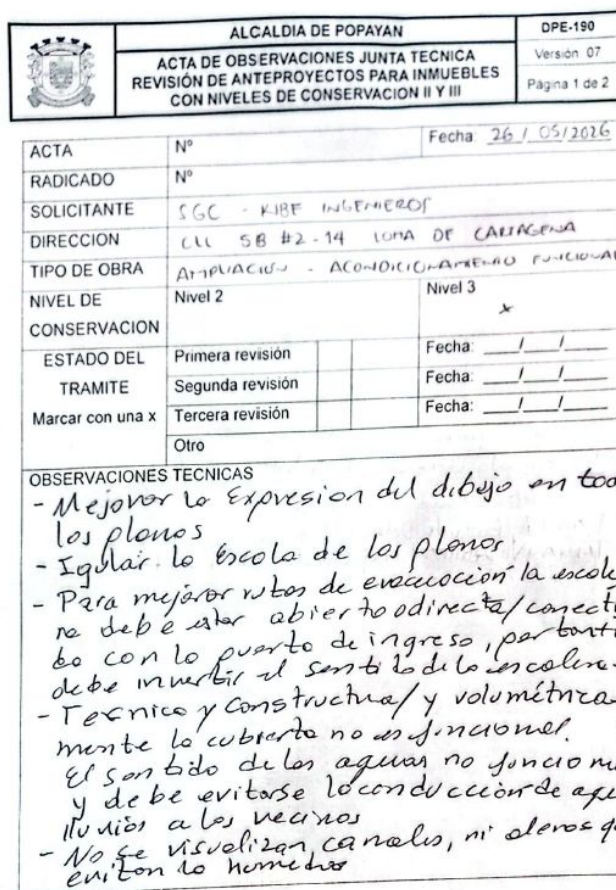 ALCALDIA DE POPAYAN
DPE-190
ACTA DE OBSERVACIONES JUNTA TECNICA
REVISIÓN DE ANTEPROYECTOS PARA INMUEBLES
CON NIVELES DE CONSERVACION II Y III
Versión 07
Página 1 de 2
ACTA Nº Fecha: 26 / 05/2026
RADICADO Nº
SOLICITANTE SGC - KIBF INGENIEROS
DIRECCION CLL 5B #2-14 LOMA DE CARTAGENA
TIPO DE OBRA AMPLIACION - ACONDICIONAMIENTO FUNCIONAL
NIVEL DE CONSERVACION Nivel 2 Nivel 3 x
ESTADO DEL TRAMITE Marcar con una x
Primera revisión Fecha: ___/___/___
Segunda revisión Fecha: ___/___/___
Tercera revisión Fecha: ___/___/___
Otro
OBSERVACIONES TECNICAS
- Mejorar la Expresion del dibujo en tod
los planos
- Igular la Escala de los planos
- Para mejorar rutas de evacuación la escale
no debe estar abierto o directa/conect
da con la puerta de ingreso, por tant
debe invertir el sentido de la escalera.
- Tecnica y constructiva/y volumétrica
mente la cubierta no es funcional.
El sentido de las aguas no funciona
y debe evitarse la conducción de agu
lluvias a los vecinos
- No se visualizan canales, ni aleros q
eviten la humedad